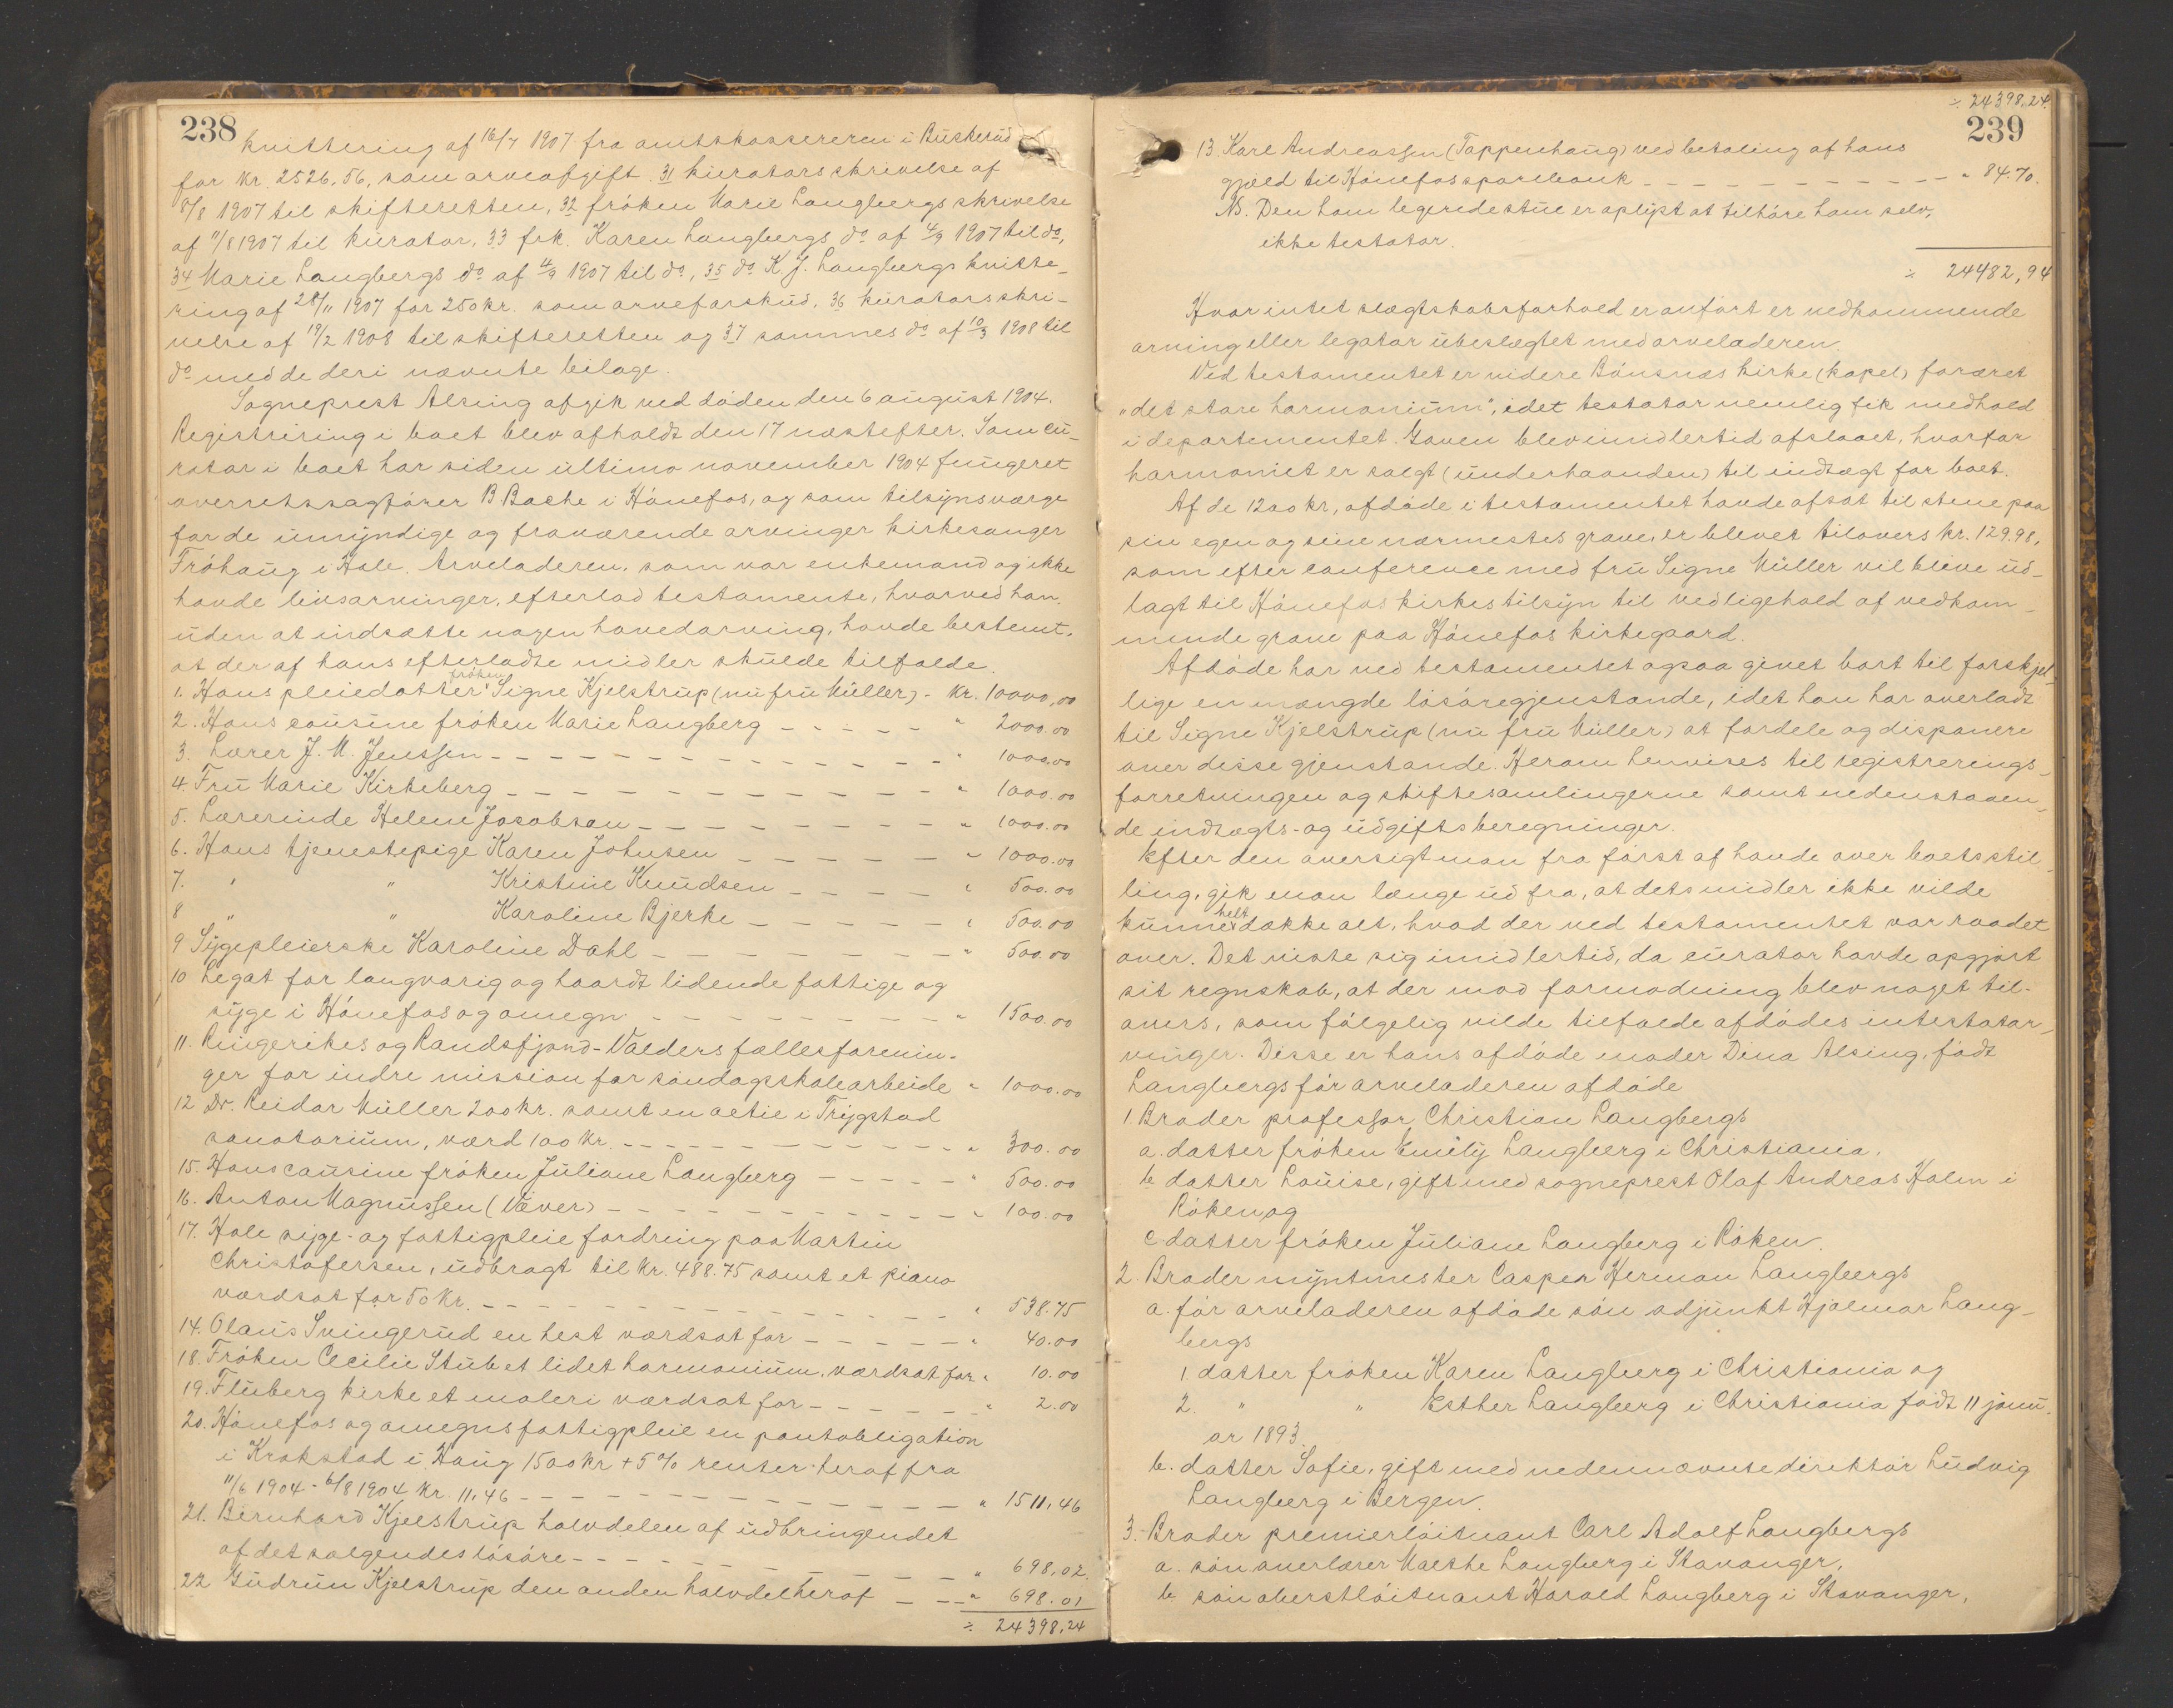 238
kvittering af 16/7 1907 fra amtskassereren i Buskerud
for kr. 2526.56, som arveafgift. 31 kurators skrivelse af
8/8 1907 til skifteretten, 32 fröken Marie Langbergs skrivelse
af 11/8 1907 til kurator, 33 frk. Karen Langbergs do af 4/9 1907 til do,
34 Marie Langbergs do af 4/9 1907 til do, 35 do K. J. Langbergs kvitte-
ring af 28/11 1907 for 250 kr. som arveforskud, 36 kurators skri-
velse af 19/2 1908 til skifteretten og 37 sammes do af 10/3 1908 til
do med de deri nævnte bilage.
Sogneprest Alsing afgik ved döden den 6 august 1904.
Registrering i boet blev afholdt den 17 næstefter. Som cu-
rator i boet har siden ultimo november 1904 fungeret
overretssagförer B Bache i Hönefos, og som tilsynsværge
for de umyndige og fraværende arvinger kirkesanger
Fröhaug i Hole. Arveladeren, som var enkemand og ikke
havde livsarvinger, efterlod testamente, hvorved han,
uden at indsætte nogen hovedarving, havde bestemt,
at der af hans efterladte midler skulde tilfalde
1. Hans pleiedatter fröken Signe Kjelstrup (nu fru Müller) - kr. 10000,00
2. Hans cousine fröken Marie Langberg - - - - - " 2000.00
3. Lærer J. M. Jenssen - - - - - " 1000.00
4. Fru Marie Kirkeberg - - - - - " 1000.00
5. Lærerinde Helene Jacobsen - - - - - " 1000.00
6. Hans tjenestepige Karen Johnsen - - - - - " 1000.00
7. " " Kristine Knudsen - - - - " 500.00
8 " " Karoline Bjerke - - - - - " 500.00
9 Sygepleierske Karoline Dahl - - - - - " 500.00
10 Legat for langvarig og haardt lidende fattige og
syge i Hönefos og omegn - - - - - " 1500.00
11. Ringerikes og Randsfjord-Valders fællesforenin-
ger for indre mission for söndagsskolearbeide " 1000.00
12 Dr. Reidar Müller 200 kr. samt en actie i Trygstad
sanatorium, værd 100 kr. - - - - - " 300.00
15. Hans cousine fröken Juliane Langberg - - - - - " 500.00
16. Anton Magnussen (Væver) - - - - - " 100.00
17. Hole syge- og fattigpleie fordring paa Martin
Christofersen, udbragt til kr. 488.75 samt et piano
værdsat for 50 kr. - - - - - " 538.75
14. Olaus Svingerud en hest værdsat for - - - - - " 40.00
18. Fröken Cecilie Stub et lidet harmonium, værdsat for " 10.00
19. Fluberg kirke et maleri værdsat for - - - - - " 2.00
20. Hönefos og omegns fattigpleie en pantobligation
i Krakstad i Haug 1500 kr + 5 % renter heraf fra
11/6 1904 - 6/8 1904 kr. 11,46 - - - - - " 1511,46
21. Bernhard Kjelstrup halvdelen af udbringendet
af det salgendes lösöre - - - - - " 698,02.
22 Gudrun Kjelstrup den anden halvdel heraf - - - " 698.01
÷ 24398,24
÷ 24398,24.
239
13. Karl Andreassen (Tappenhaug) ved betaling af hans
gjæld til Hönefos sparebank - - - - - " 84.70.
NB. Den ham legerede stue er oplyst at tilhöre ham selv,
ikke testator.
÷ 24482,94
Hvor intet slægtskabsforhold er anfört er vedkommende
arving eller legatar ubeslægtet med arveladeren.
Ved testamentet er videre Bönsnæs kirke (kapel) foræret
"det store harmonium", idet testator nemlig fik medhold
i departementet. Gaven blev imidlertid afslaaet, hvorfor
harmoniet er solgt (underhaanden) til indtægt for boet.
Af de 1200 kr, afdöde i testamentet havde afsat til stene paa
sin egen og sine nærmestes grave, er blevet tilovers kr. 129.98,
som efter conference med fru Signe Müller vil blive ud-
lagt til Hönefos kirkestilsyn til vedligehold af vedkom-
mende grave paa Hönefos kirkegaard.
Afdöde har ved testamentet ogsaa givet bort til forskjel-
lige en mængde lösöregjenstande, idet han har overladt
til Signe Kjelstrup (nu fru Müller) at fordele og disponere
over disse gjenstande. Herom henvises til registrerings-
forretningen og skiftesamlingerne samt nedenstaaen-
de indtægts- og udgiftsberegninger.
Efter den oversigt man fra först af havde over boets stil-
ling, gik man længe ud fra, at dets midler ikke vilde
kunne helt dække alt, hvad der ved testamentet var raadet
over. Det viste sig imidlertid, da curator havde opgjort
sit regnskab, at der mod formodning blev noget til-
overs, som fölgelig vilde tilfalde afdödes intestatar-
vinger. Disse er hans afdöde moder Dina Alsing, födt
Langbergs för arveladeren afdöde
1. Broder professor Christian Langbergs
a. datter fröken Emily Langberg i Christiania.
b datter Louise, gift med sogneprest Olaf Andreas Holm i
Röken og
c datter fröken Juliane Langberg i Röken.
2. Broder myntmester Casper Herman Langbergs
a. för arveladeren afdöde sön adjunkt Hjalmar Lang-
bergs
1. datter fröken Karen Langberg i Christiania og
2. " " Esther Langberg i Christiania födt 11 janu-
ar 1893.
b. datter Sofie, gift med nedennævnte direktör Ludvig
Langberg i Bergen.
3. Broder premierlöitnant Carl Adolf Langbergs
a. sön overlærer Malthe Langberg i Stavanger,
b sön oberstlöitnant Harald Langberg i Stavanger,